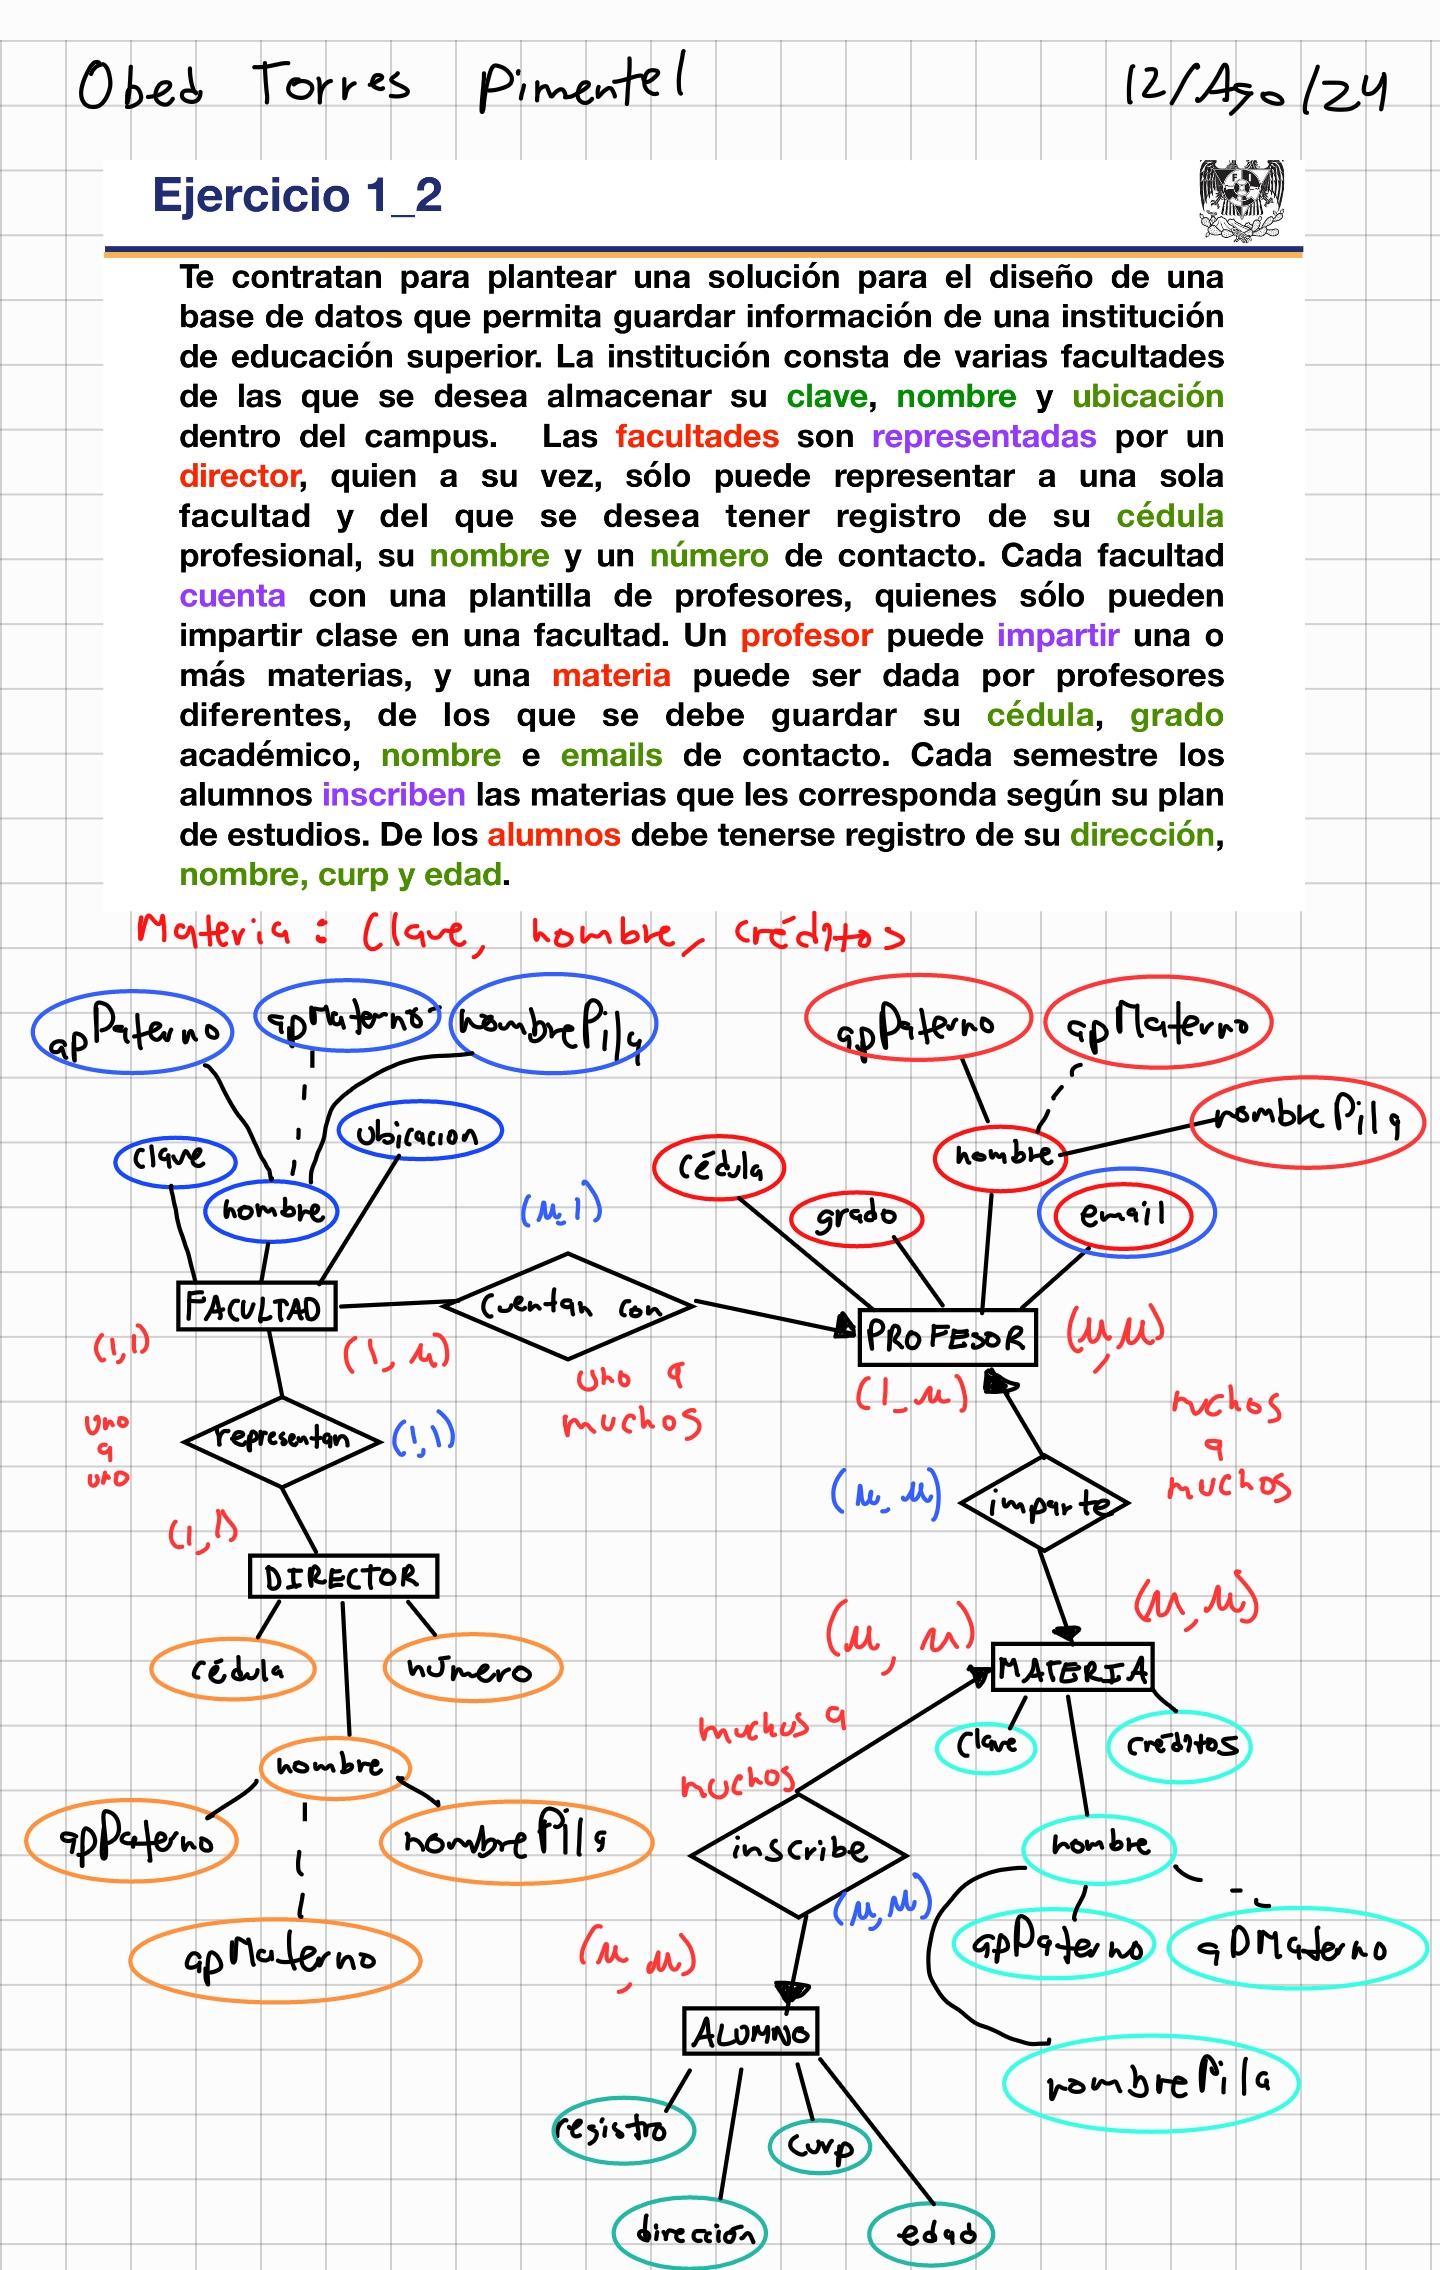 Obed Torres Pimentel 12/Ago/24
Ejercicio 1_2
Te contratan para plantear una solución para el diseño de una
base de datos que permita guardar información de una institución
de educación superior. La institución consta de varias facultades
de las que se desea almacenar su clave, nombre y ubicación
dentro del campus. Las facultades son representadas por un
director, quien a su vez, sólo puede representar a una sola
facultad y del que se desea tener registro de su cédula
profesional, su nombre y un número de contacto. Cada facultad
cuenta con una plantilla de profesores, quienes sólo pueden
impartir clase en una facultad. Un profesor puede impartir una o
más materias, y una materia puede ser dada por profesores
diferentes, de los que se debe guardar su cédula, grado
académico, nombre e emails de contacto. Cada semestre los
alumnos inscriben las materias que les corresponda según su plan
de estudios. De los alumnos debe tenerse registro de su dirección,
nombre, curp y edad.
Materia: Clave, nombre, créditos
apPaterno apMaterno nombrePila apPaterno apMaterno
nombrePila
clave ubicacion cédula nombre
nombre (M,1) grado email
FACULTAD cuentan con PROFESOR (M,M)
(1,1) (1,M) uno a (1,M)
muchos
uno
a
uno
representan (1,1)
muchos
a
muchos
(M,M) imparte
(1,1)
DIRECTOR (M,M) (M,M)
cédula número MATERIA
muchos a
muchos
Clave créditos
nombre
apPaterno nombrePila inscribe nombre
(M,M)
apMaterno (M,M) apPaterno apMaterno
ALUMNO
nombrePila
registro curp
dirección edad